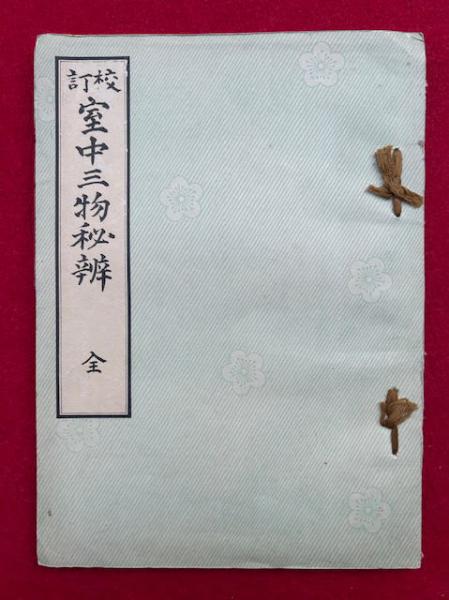 校訂
室中三物秘辨
全